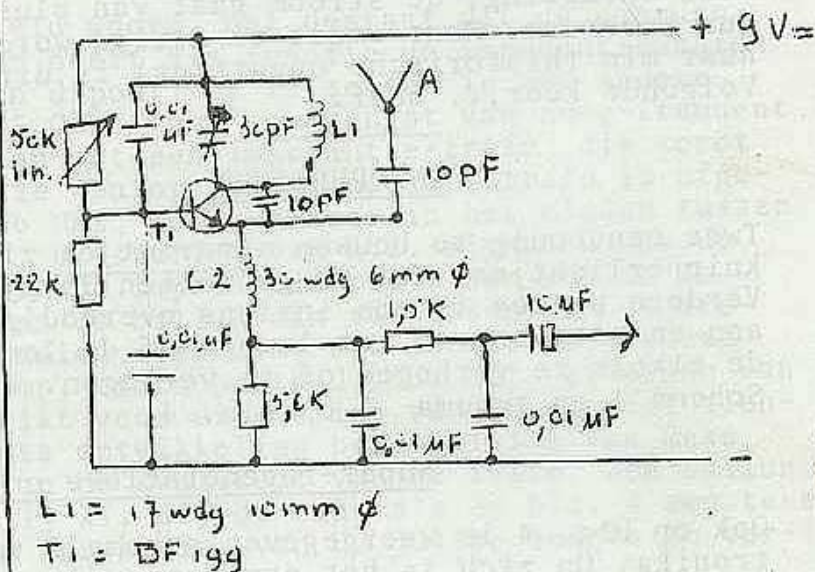 + 9 V=
A
50k
lin.
0,01
µF
30pF
L1
10pF
10pF
T1
22k
L2 30 wdg 6mm ø
1,5K
10µF
0,01µF
5,6K
0,01µF
0,01µF
-
L1 = 17 wdg 10mm ø
T1 = BF199